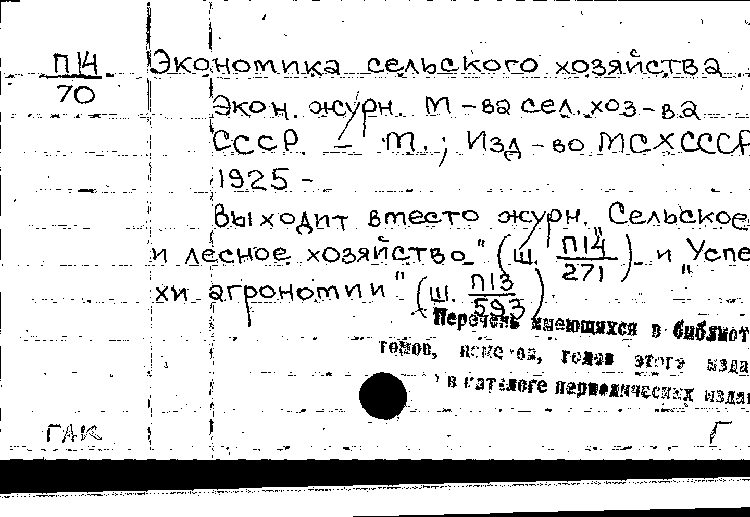 П14
70
Экономика сельского хозяйства
Экон. журн. М-ва сел. хоз-ва
СССР. – М.; Изд-во МСХСССР
1925 –
Выходит вместо журн. "Сельское
и лесное хозяйство" (ш. П14
271) и "Успе
хи агрономии" (ш. П13
593)
Перечень имеющихся в библиот
томов, номеров, годов этого изда
в каталоге периодических издан
ГАК
Г